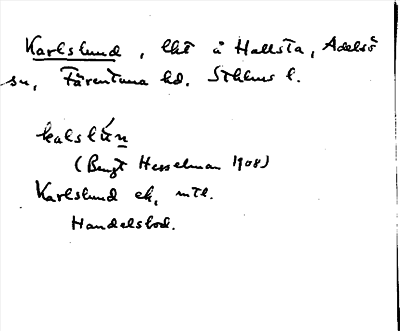 Karlslund, lht å Hallsta, Adelsö
sn, Färentuna hd, Sthlms l.
kalslún
(Bengt Hesselman 1908)
Karlslund ek, mtl.
Handelsbod.